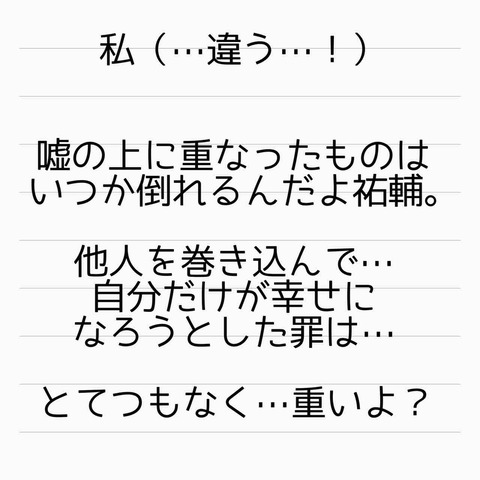 私（…違う…！）
嘘の上に重なったものは
いつか倒れるんだよ祐輔。
他人を巻き込んで…
自分だけが幸せに
なろうとした罪は…
とてつもなく…重いよ？